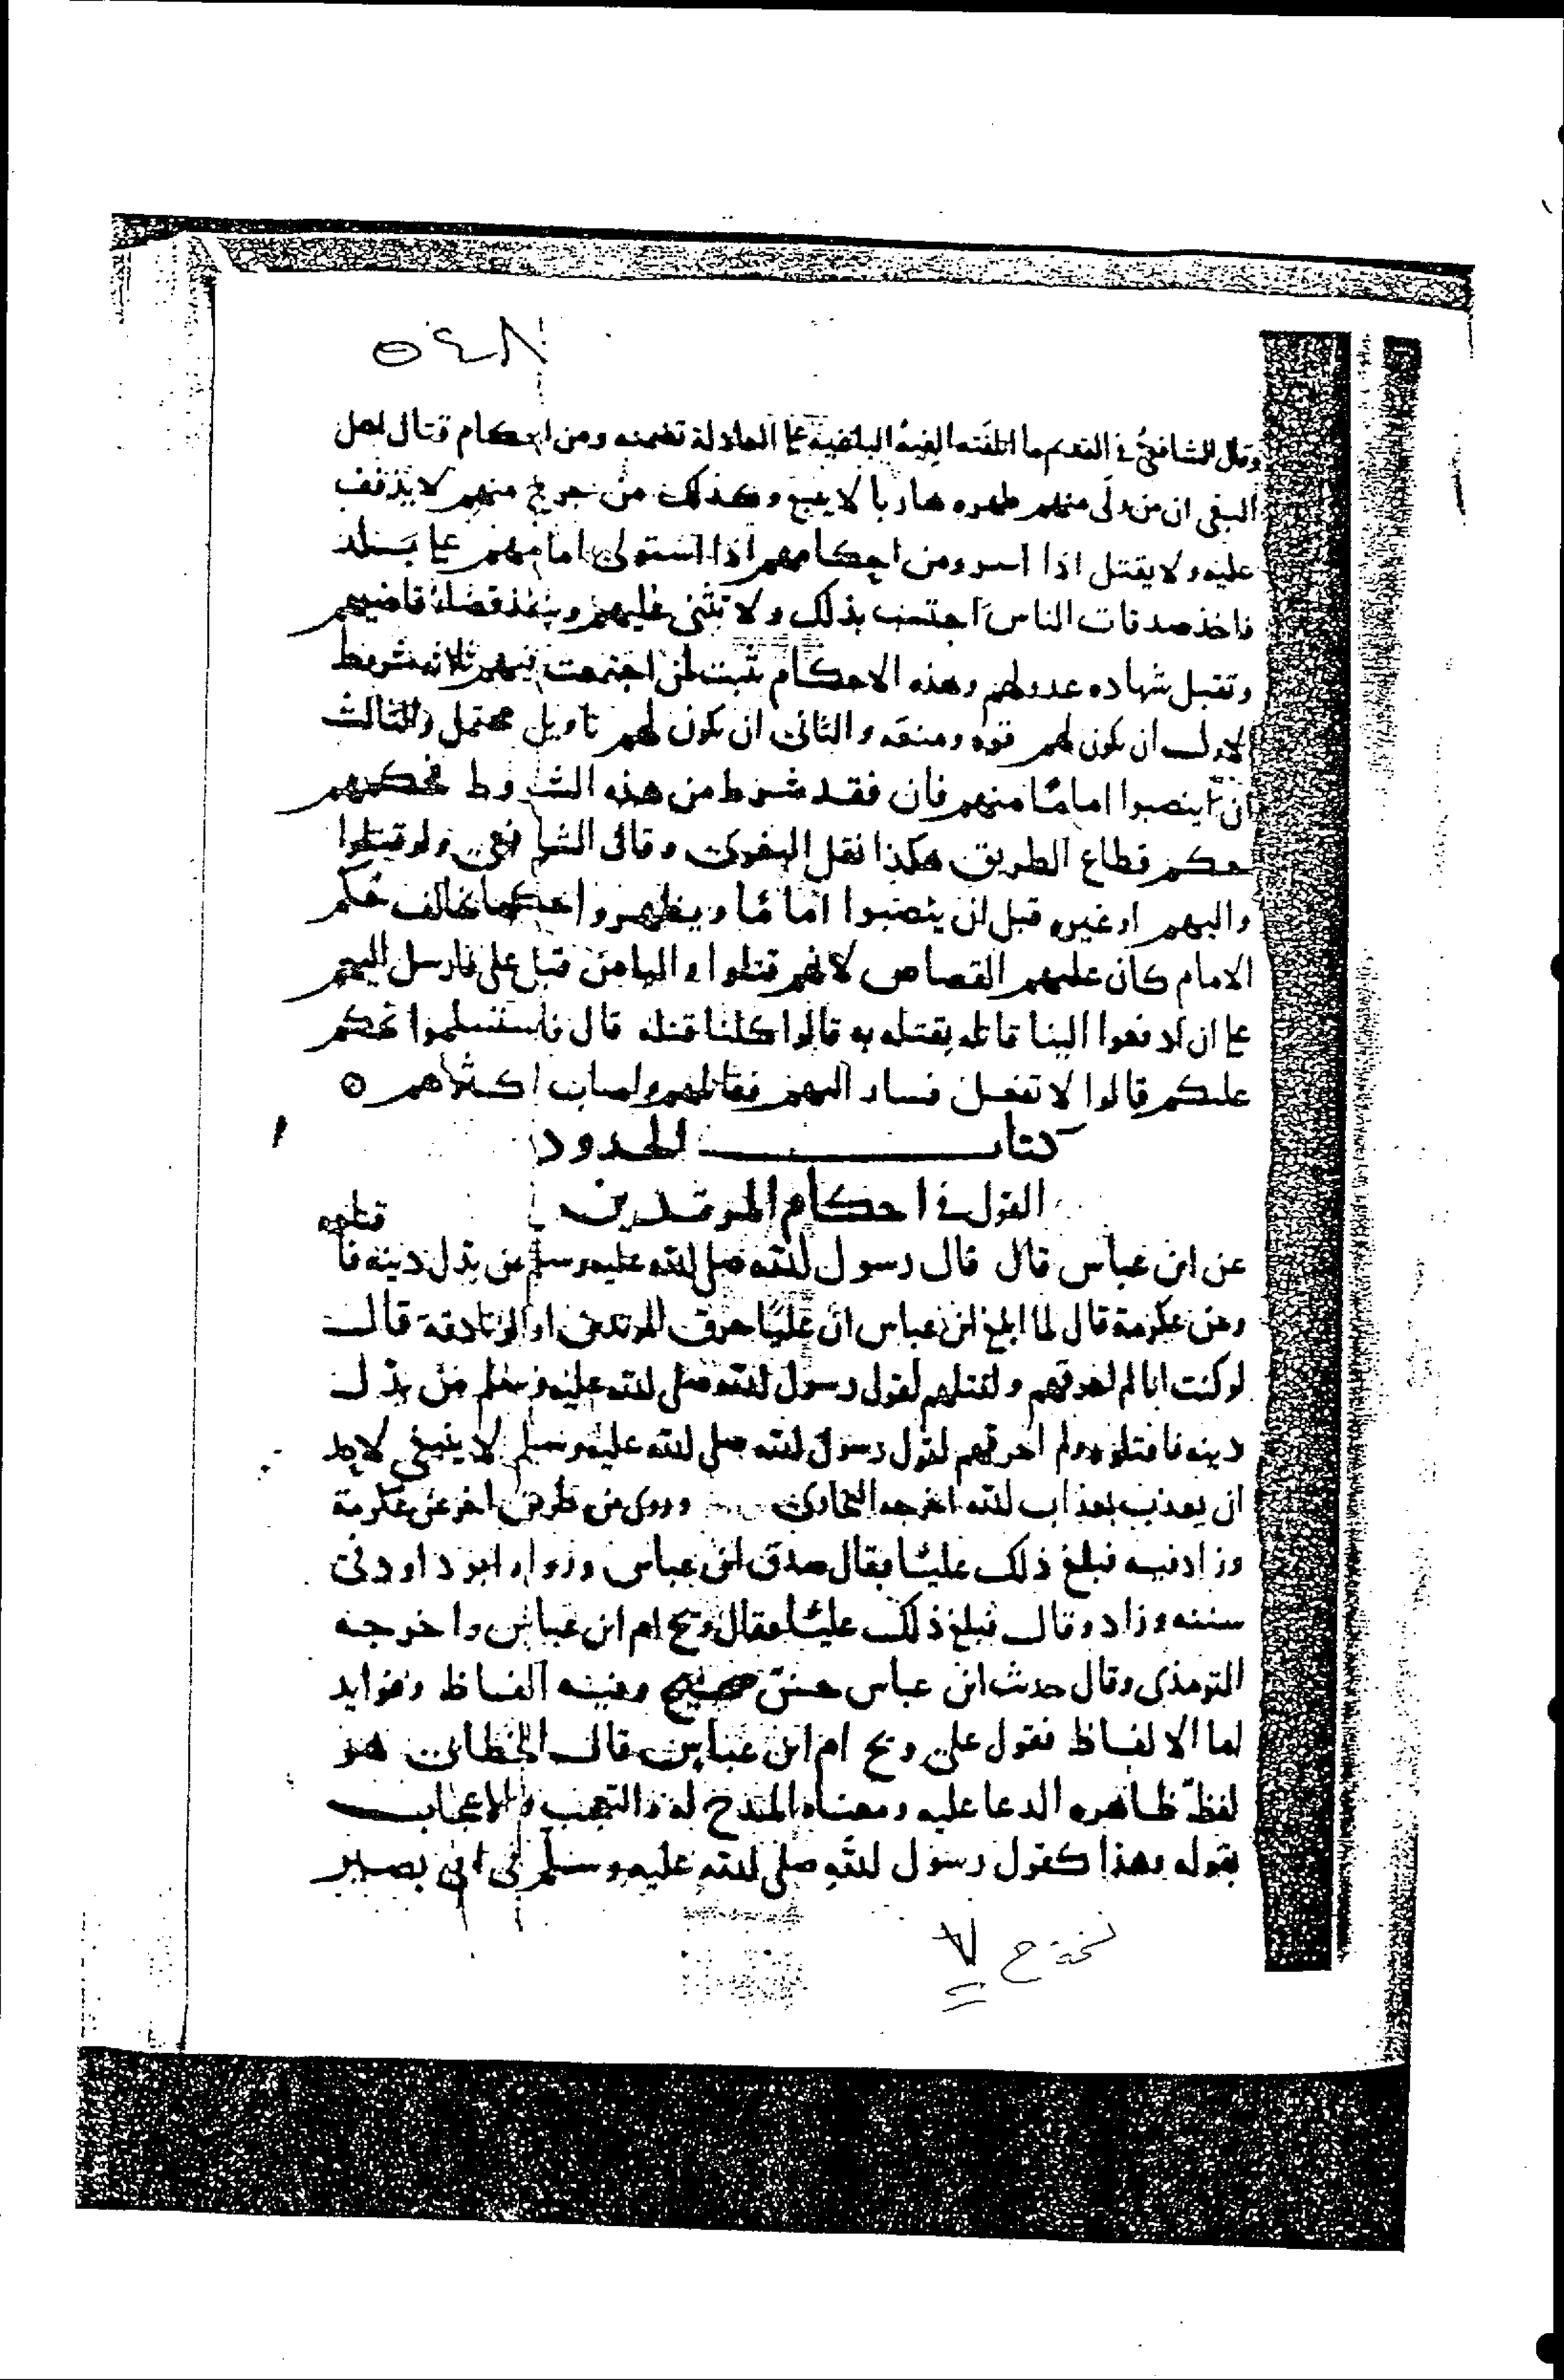 ٥٤٨
وقال الشافعي في القديم ما اتلفته الفئة الباغية على العادلة تضمنه ومن احكام قتال اهل
البغي ان من ولى منهم ظهره هاربا لا يتبع وكذلك من جرح منهم لا يذفف
عليه ولا يقتل اذا اسر ومن احكامهم اذا استولى امامهم على بلد
فاخذ صدقات الناس احتسب بذلك ولا تثنى عليهم وينفذ قضاء قاضيهم
وتقبل شهاده عدولهم وهذه الاحكام تثبت لمن اجتمعت فيهم ثلاثه شروط
الاول ان يكون لهم قوه ومنعه والثاني ان يكون لهم تاويل محتمل والثالث
ان ينصبوا امامًا منهم فان فقد شرط من هذه الشروط فحكمهم
حكم قطاع الطريق هكذا نقل البغوي وقال الشافعي ولو قتلوا
واليهم او غيره قبل ان ينصبوا امامًا ويظهروا حكما يخالف حكم
الامام كان عليهم القصاص لانهم قتلوا والياً من قبل علي فارسل اليهم
على ان ادفعوا الينا قاتله نقتله به قالوا كلنا قتله قال فاستسلموا نحكم
عليكم قالوا لا نفعل فسار اليهم فقاتلهم واصاب اكثرهم ○
كتاب الحدود
القول في احكام المرتدين
عن ابن عباس قال قال رسول الله صلى الله عليه وسلم من بدل دينه فا قتلوه
وعن عكرمة قال لما بلغ ابن عباس ان عليًا حرق المرتدين او الزنادقة قال
لو كنت انا لم احرقهم ولقتلتهم لقول رسول الله صلى الله عليه وسلم من بدل
دينه فاقتلوه ولم احرقهم لقول رسول الله صلى الله عليه وسلم لا ينبغي لاحد
ان يعذب بعذاب الله اخرجه البخاري وروى من طريق اخر عن عكرمة
وزاد فيه فبلغ ذلك عليًا فقال صدق ابن عباس ورواه ابو داود في
سننه وزاد وقال فبلغ ذلك عليًا فقال ويح ام ابن عباس واخرجه
الترمذي وقال حديث ابن عباس حسن صحيح وفيه الفاظ وفوايد
اما الالفاظ فقول علي ويح ام ابن عباس قال الخطابي هو
لفظ ظاهره الدعا عليه ومعناه المدح له والتعجب والاعجاب
بقوله وهذا كقول رسول الله صلى الله عليه وسلم في ابي بصير
نسخة ح